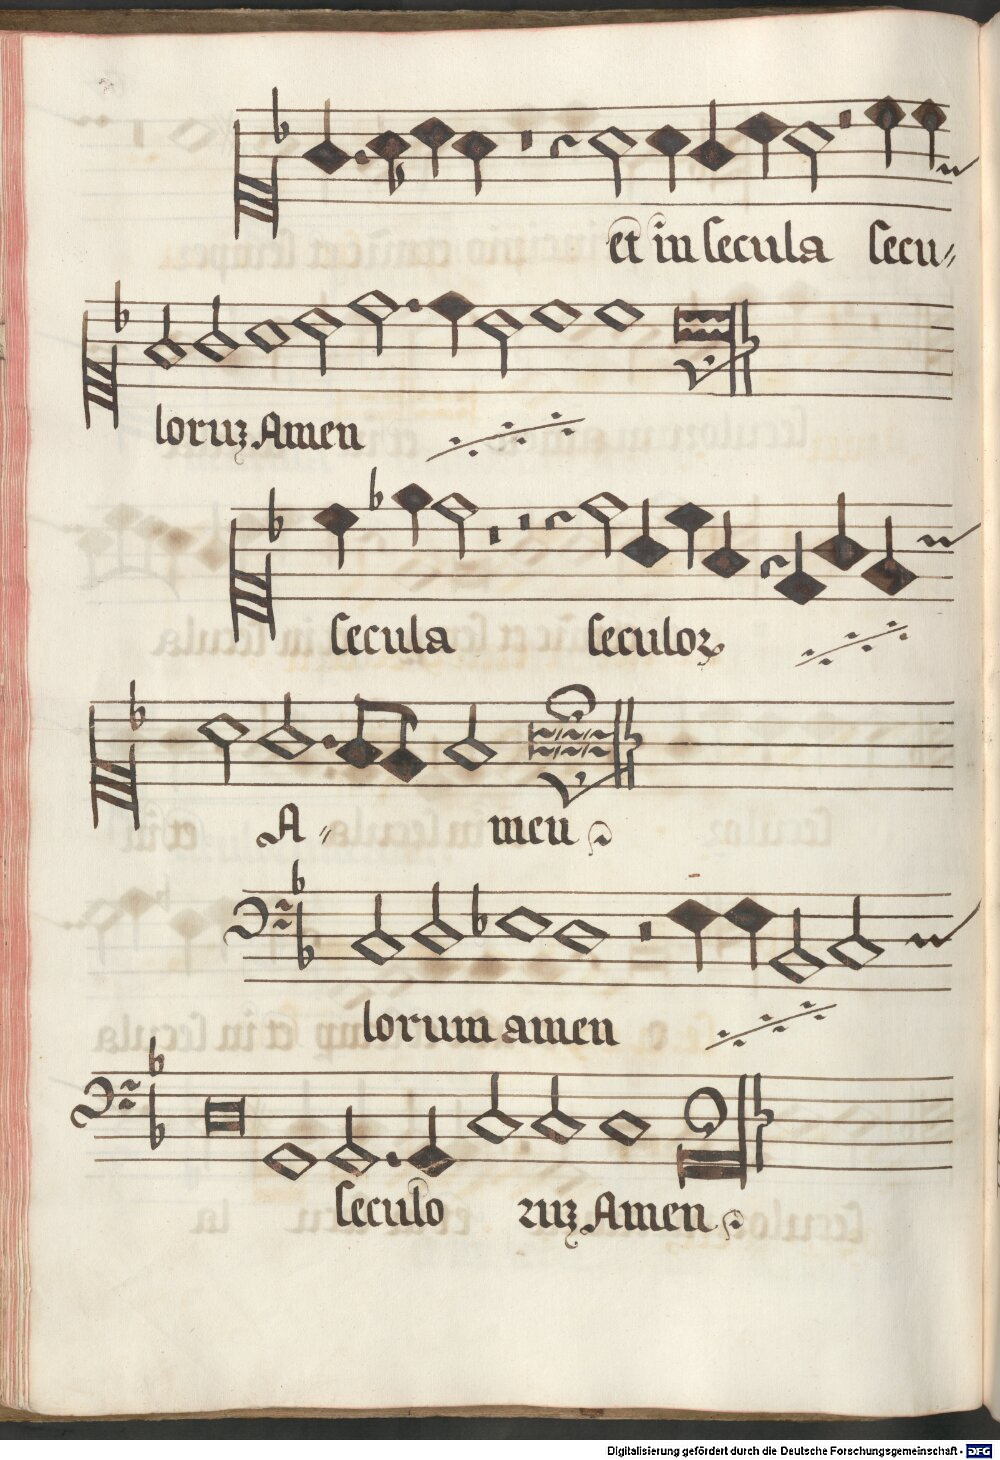 et in secula secu⸗
loruꝫ Amen
secula seculoꝝ
A⸗ men
lorum amen
seculo ruꝫ Amen
Digitalisierung gefördert durch die Deutsche Forschungsgemeinschaft - DFG